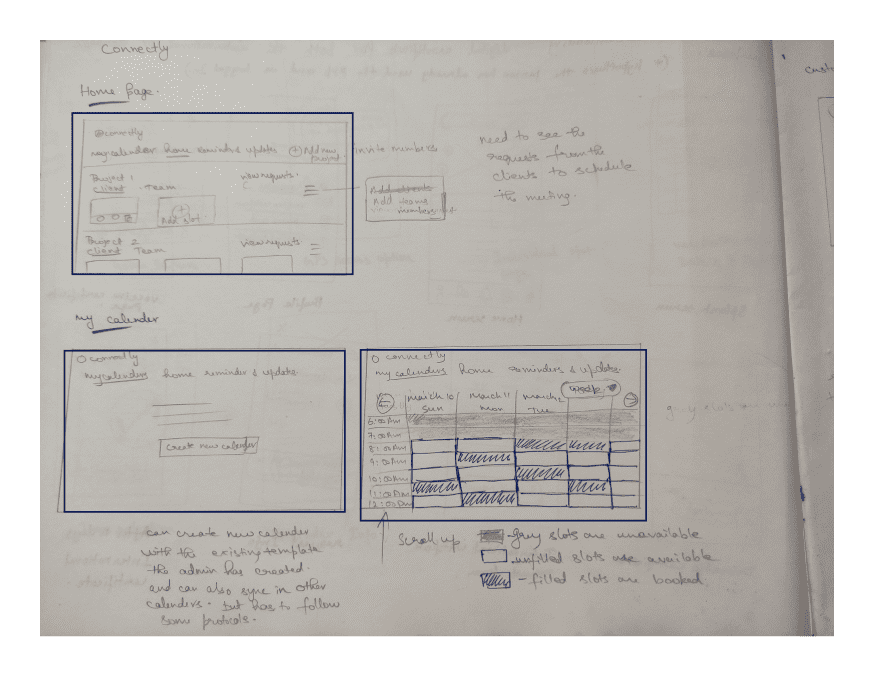 Connectly
Home Page.
connectly
mycalender home reminds & updates + Add new project
invite members
Project 1
client . Team
view requests.
Add slot
Add clients
Add teams
members list
Project 2
client Team
view requests
need to see the
requests from the
clients to schedule
the meeting.
my calender
connectly
mycalenders home reminder & updates
create new calender
connectly
my calenders home reminders & updates.
march 10
sun
march 11
mon
march
Tue
6:00 Am
7:00 Am
8:00 Am
9:00 Am
10:00 Am
11:00 Am
12:00 Pm
can create new calender
with the existing template
the admin has created.
and can also sync in other
calenders. but has to follow
some protocals.
scroll up
- grey slots are unavailable
- unfilled slots are available
- filled slots are booked.